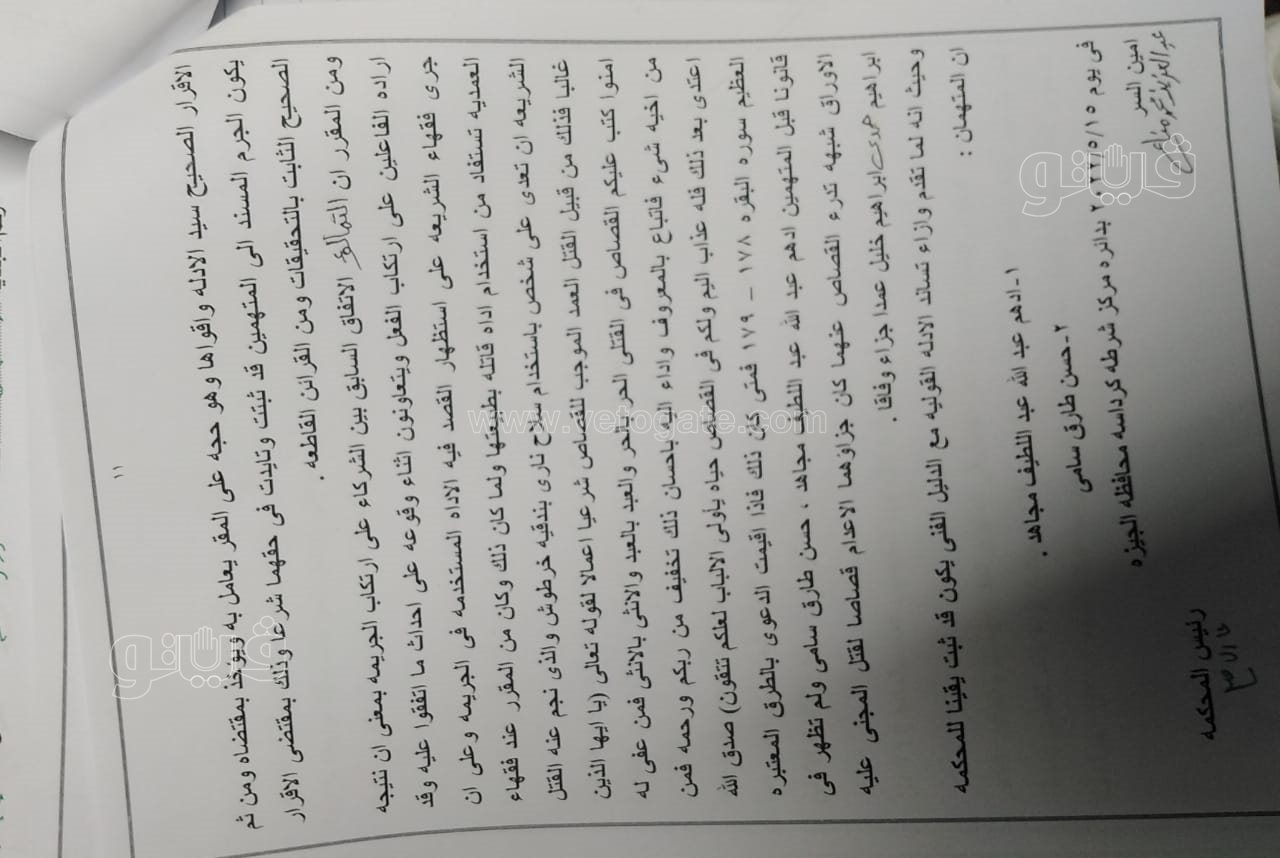 ١١
الاقرار الصحيح سيد الادله واقواها وهو حجه على المقر يعامل به ويؤخذ بمقتضاه ومن ثم
يكون الجرم المسند الى المتهمين قد ثبتت وتايدت فى حقهما شرعا وذلك بمقتضى الاقرار
الصحيح الثابت بالتحقيقات ومن القرائن القاطعه .
ومن المقرر ان التمالؤ الاتفاق السابق بين الشركاء على ارتكاب الجريمه بمعنى ان نتيجه
اراده الفاعلين على ارتكاب الفعل ويتعاونون اثناء وقوعه على احداث ما اتفقوا عليه وقد
جرى فقهاء الشريعه على استظهار القصد فيه الاداه المستخدمه فى الجريمه وعلى ان
العمديه تستفاد من استخدام اداه قاتله بطبيعتها ولما كان ذلك وكان من المقرر عند فقهاء
الشريعه ان تعدى على شخص باستخدام سلاح نارى بندقيه خرطوش والذى نجم عنه القتل
غالبا فذلك من قبيل القتل العمد الموجب للقصاص شرعيا اعمالا لقوله تعالى (يا ايها الذين
امنوا كتب عليكم القصاص فى القتلى الحر بالحر والعبد بالعبد والانثى بالانثى فمن عفى له
من اخيه شىء فاتباع بالمعروف واداء اليه باحسان ذلك تخفيف من ربكم ورحمه فمن
اعتدى بعد ذلك فله عذاب اليم ولكم فى القصاص حياه ياولى الالباب لعلكم تتقون) صدق الله
العظيم سوره البقره ١٧٨ – ١٧٩ فمتى كان ذلك فاذا اقيمت الدعوى بالطرق المعتبره
قانونا قبل المتهمين ادهم عبد الله عبد اللطيف مجاهد ، حسن طارق سامى ولم تظهر فى
الاوراق شبهه تدرء القصاص عنهما كان جزاؤهما الاعدام قصاصا لقتل المجنى عليه
ابراهيم حمدى ابراهيم خليل عمدا جزاء وفاقا .
وحيث انه لما تقدم وازاء تساند الادله القوليه مع الدليل الفنى يكون قد ثبت يقينا للمحكمه
ان المتهمان :
١- ادهم عبد الله عبد اللطيف مجاهد .
٢- حسن طارق سامى
فى يوم ٢٠٢٢/٥/١٥ بدائره مركز شرطه كرداسه محافظه الجيزه
امين السر
رئيس المحكمه
www.vetogate.com
فايتو
فايتو